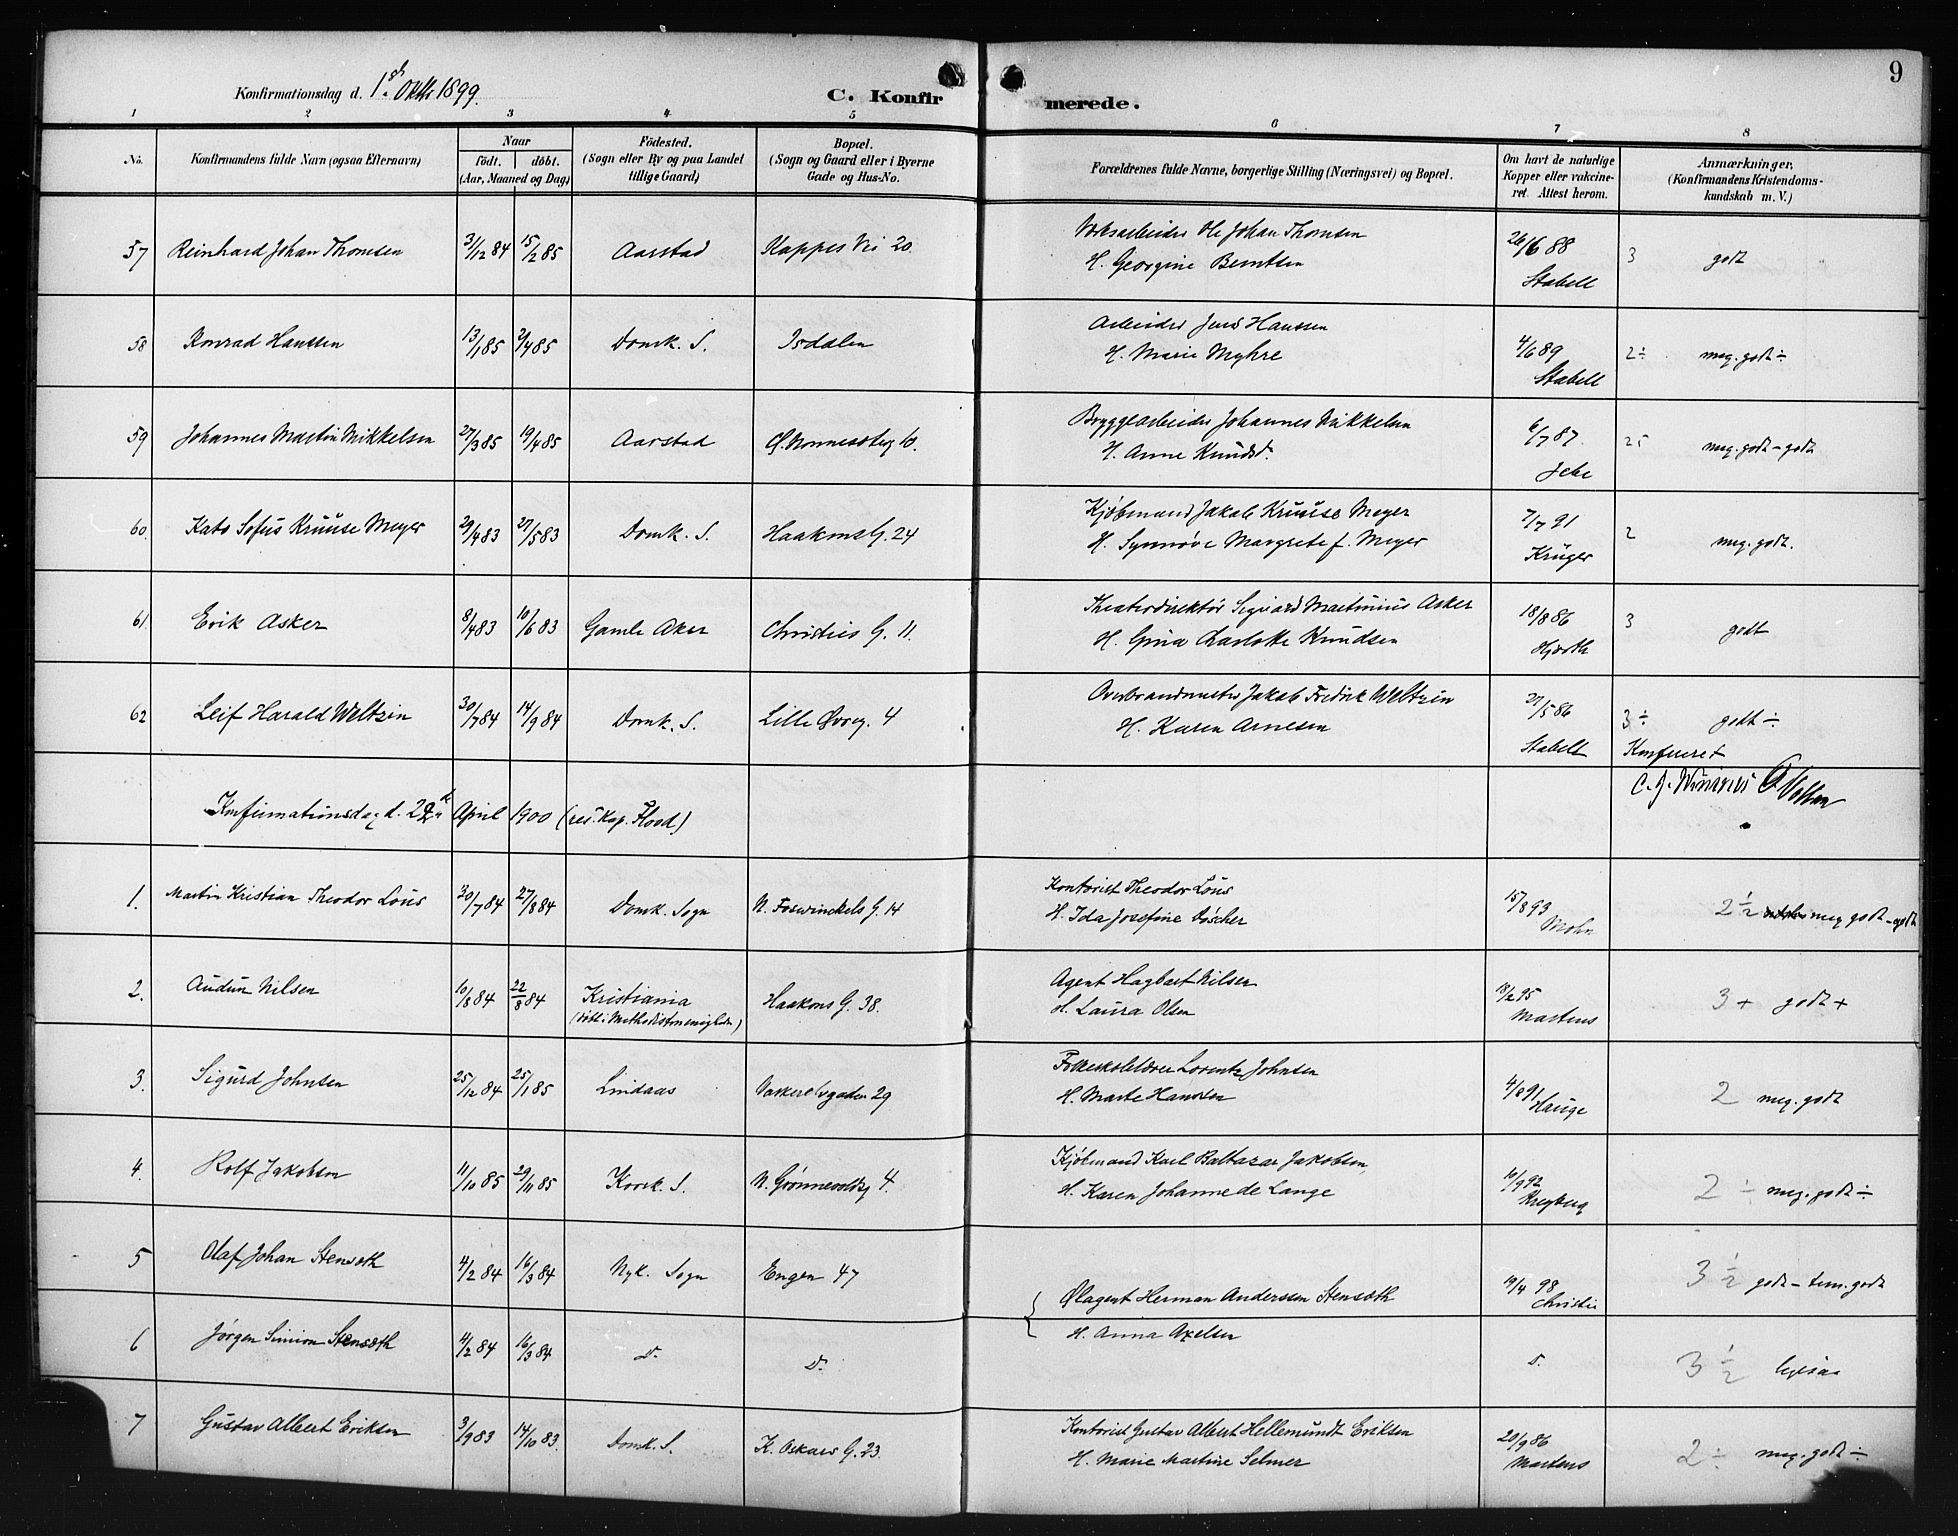 9
Konfirmationsdag d. 1ste Oktbr 1899.
C. Konfirmerede.
1 2 3 4 5 6 7 8
No. Konfirmandens fulde Navn (ogsaa Efternavn) Naar födt. döbt. (Aar, Maaned og Dag) Födested. (Sogn eller By og paa Landet tillige Gaard) Bopæl. (Sogn og Gaard eller i Byerne Gade og Hus-No. Forældrenes fulde Navne, borgerlige Stilling (Næringsvei) og Bopæl. Om havt de naturlige Kopper eller vakcineret. Attest herom. Anmærkninger. (Konfirmandens Kristendomskundskab m. V.)
57 Reinhard Johan Thomsen 31/12 84 15/2 85 Aarstad Kappes Vei 20. Ole Johan Thomsen 26/6 88 3 godt
H. Georgine Berntsen Stabell
58 Konrad Hanssen 13/1 85 Domk. S. Isdalen Arbeider Jens Hanssen 4/6 89 2÷ meg. godt÷
H. Marie Myhre Stabell
59 Johannes Martin Mikkelsen 27/3 85 19/4 85 Aarstad Bryggearbeider Johannes Mikkelsen 6/7 87. 25 meg. godt–godt
H. Anne Knudsd.
60. Kato Sofus Kruuse Meyer 29/4 83 27/5 83 Domk. S. Haakons G. 24 Kjøbmand Jakob Kruuse Meyer 7/7 91 2 meg. godt.
H. Synnøve Margrete f. Meyer Krüger
61. Erik Asker 8/4 83 10/6 83 Gamle Aker Christies G. 11. Theaterdirektør Siguard Martinius Asker 18/8 86 3 godt
H. Gina Charlotte Knudsen Hjorth
62 Leif Harald Weltzin 30/7 84 14/9 84 Domk. S. Lille Øvreg. 4 Overbrandmester Jakob Fredrik Weltzin 27/5 86 3÷ godt÷
H. Karen Arnesen Stabell Konfereret
Konfirmationsdag d. 22de April 1900 (res. Kap. Flood)
1. Martin Kristian Theodor Lous 30/7 84 27/8 84 Domk. Sogn N. Foswinckels G. 14 Kontorist Theodor Lous 15/8 93 2 1/2 meg godt–godt
H. Ida Josefine Mohn
2. Audun Nilsen 10/8 84 22/8 84 Kristiania Haakons G. 38. Agent Hagbart Nilsen 18/2 95 3+ godt+
(døbt i Methodistmenigheden) H. Laura Olsen Martens
3. Sigurd Johnsen 25/12 84 25/1 85 Lindaas Vaskerelvgaden 29 Folkeskolelærer Lorentz Johnsen 4/8 91 2 meg. godt
H. Marte Hanssen Hauge
4. Rolf Jakobsen 11/10 85 29/11 85 Korsk. S. N. Grønnevoldsg 4. Kjøbmand Karl Baltazar Jakobsen 19/9 92 2÷ meg. godt÷
H. Karen Johanne de Lange
5 Olaf Johan Stensøth 4/2 84 16/3 84 Nyk. Sogn Engen 47 Ølagent Herman Anderssen Stensøth 19/4 98 3 1/2 godt–tem. godt
Christie
6 Jørgen Simon Stensøth 4/2 84 16/3 84 D. D. H. Anna Axelsen D. 3 1/2 ligesaa
7 Gustav Albert Eriksen 3/9 83 14/10 83. Domk. S. K. Oskars G. 23 Kontorist Gustav Albert Hellemundt Eriksen 20/9 86 2÷ meg. godt÷
H. Marie Martine Selmer Martens